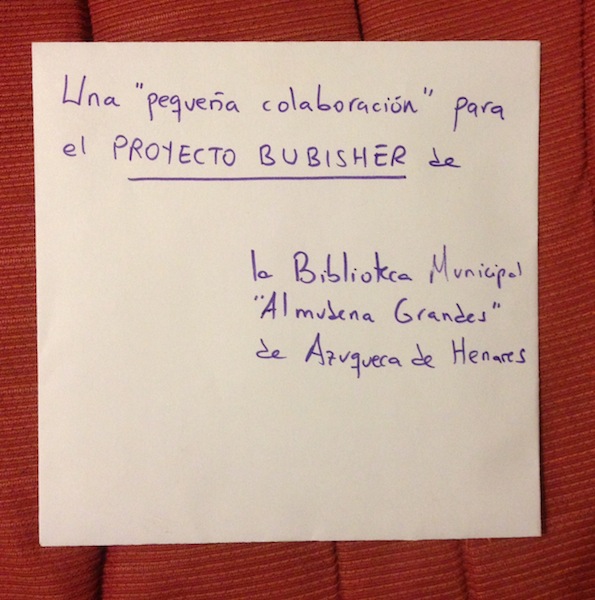 Una "pequeña colaboración" para
el PROYECTO BUBISHER de
la Biblioteca Municipal
"Almudena Grandes"
de Azuqueca de Henares